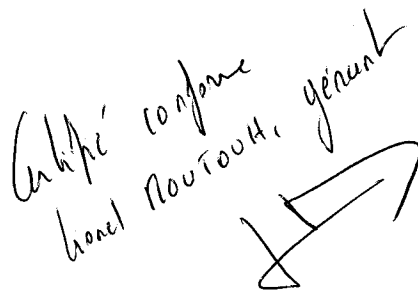 Certifié conforme
Lionel MOUTOUH, gérant